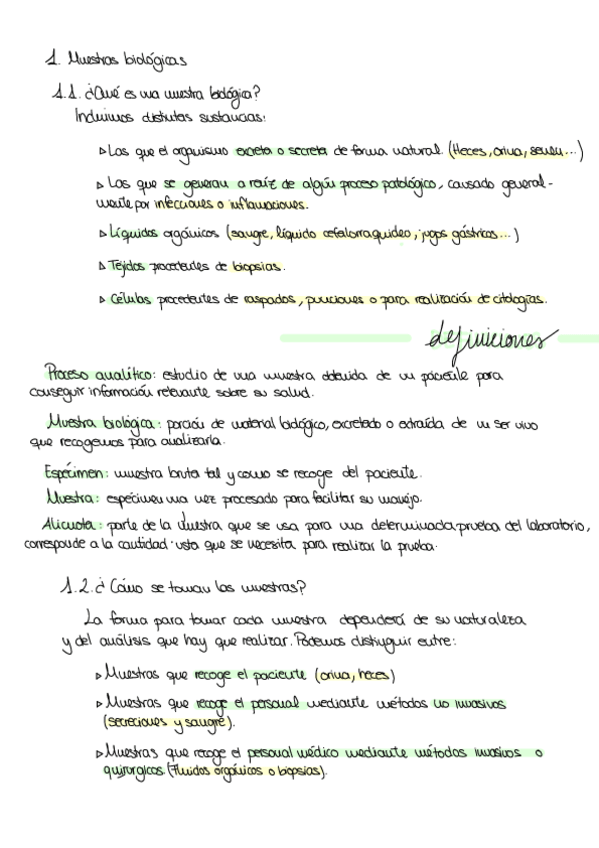 1. Muestras biológicas
1.1. ¿Qué es una muestra biológica?
Incluimos distintas sustancias:
▹ Las que el organismo excreta o secreta de forma natural. (Heces, orina, semen...)
▹ Las que se generan a raíz de algún proceso patológico, causado general-
mente por infecciones o inflamaciones.
▹ Líquidos orgánicos (sangre, líquido cefalorraquideo, jugos gástricos...)
▹ Tejidos procedentes de biopsias.
▹ Células procedentes de raspados, punciones o para realización de citologías.
definiciones
Proceso analítico: estudio de una muestra obtenida de un paciente para
conseguir información relevante sobre su salud.
Muestra biológica: porción de material biológico, excretado o extraída de un ser vivo
que recogemos para analizarla.
Espécimen: muestra bruta tal y como se recoge del paciente.
Muestra: espécimen una vez procesado para facilitar su manejo.
Alicuota: parte de la muestra que se usa para una determinada prueba del laboratorio,
corresponde a la cantidad justa que se necesita para realizar la prueba.
1.2. ¿Cómo se toman las muestras?
La forma para tomar cada muestra dependerá de su naturaleza
y del análisis que hay que realizar. Podemos distinguir entre:
▹ Muestras que recoge el paciente (orina, heces)
▹ Muestras que recoge el personal mediante métodos no invasivos
(secreciones y sangre).
▹ Muestras que recoge el personal médico mediante métodos invasivos o
quirurgicos. (Fluidos orgánicos o biopsias).